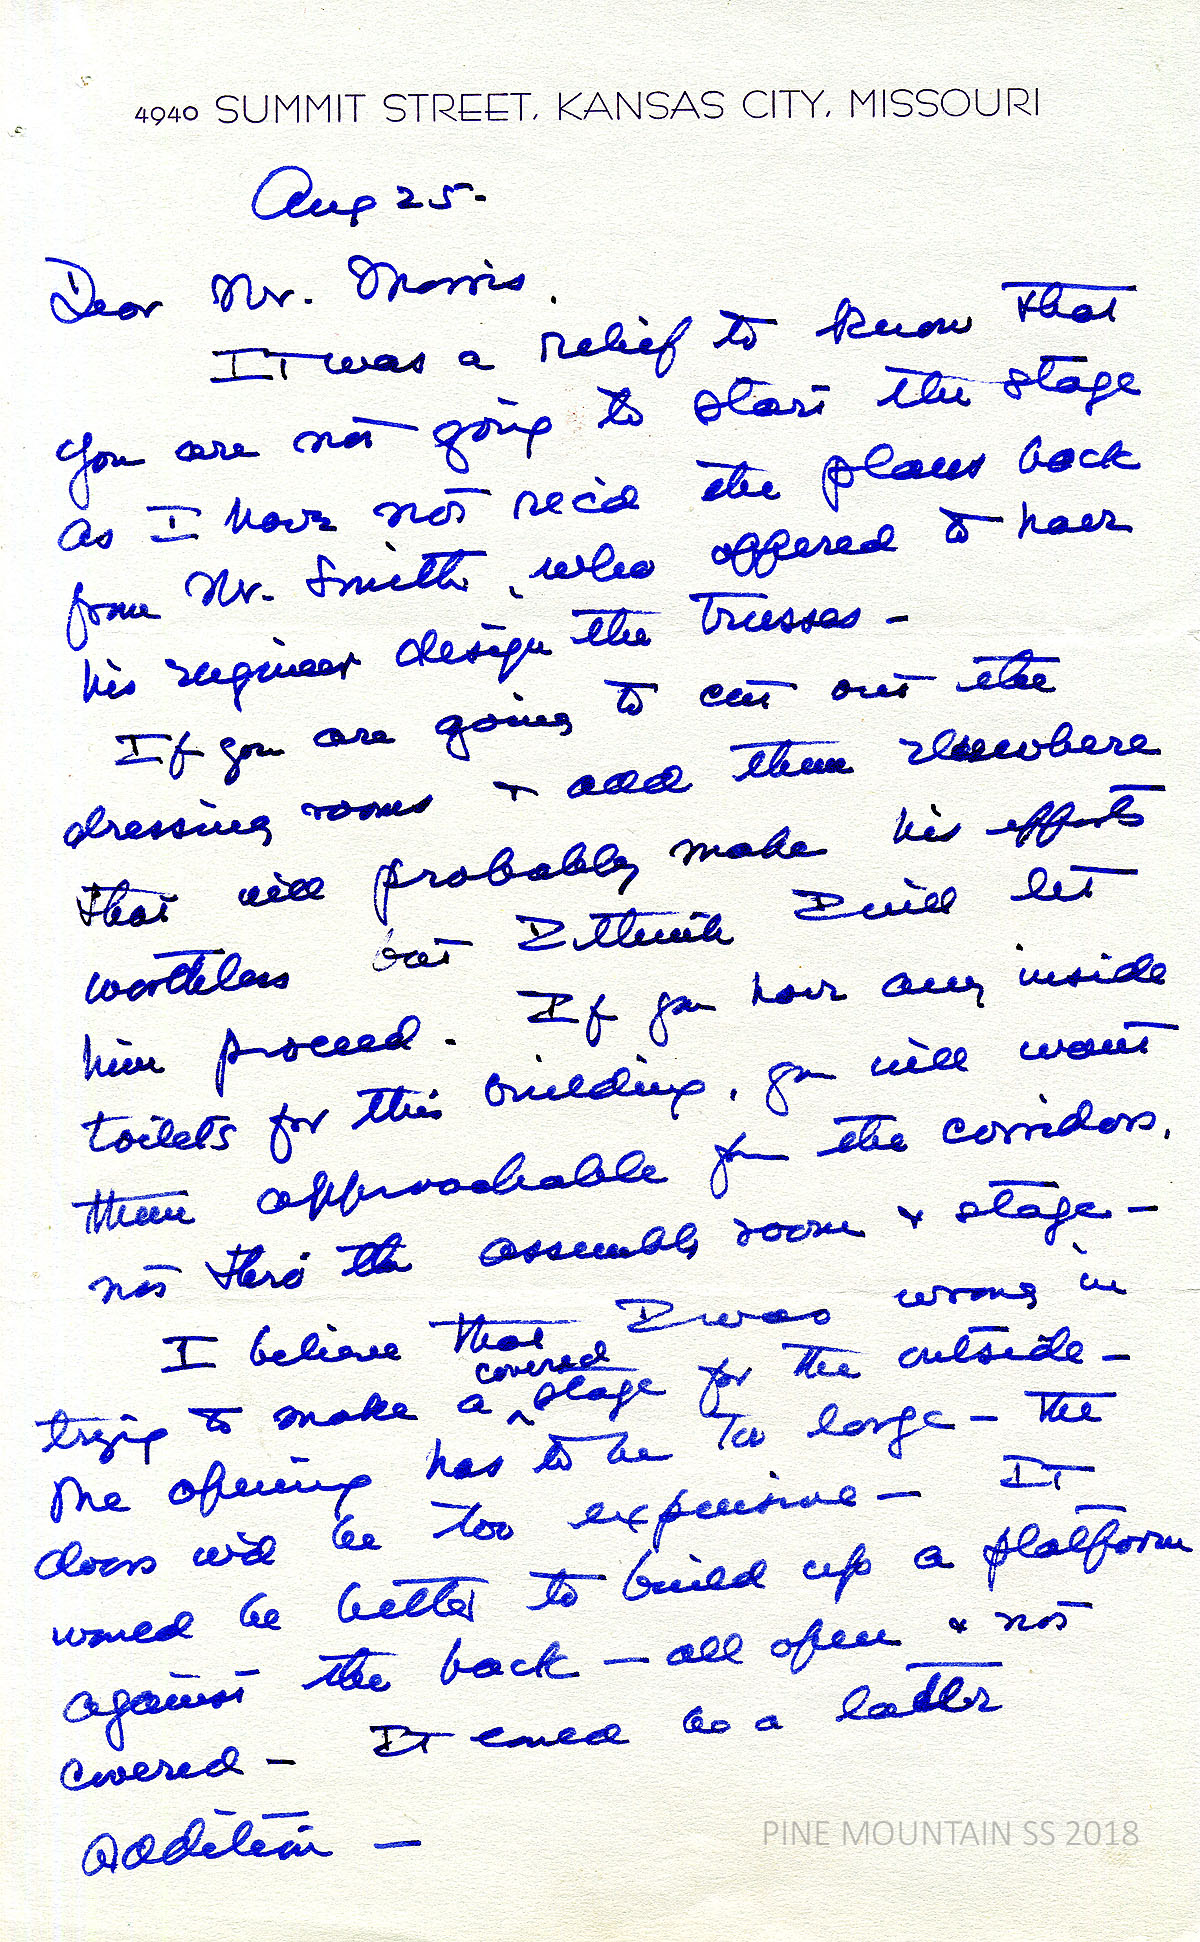 4940 SUMMIT STREET, KANSAS CITY, MISSOURI
Aug 25.
Dear Mr. Morris.
It was a relief to know that
you are not going to start the stage
as I have not rec'd the plans back
from Mr. Smith, who offered to have
his engineer design the trusses –
If you are going to cut out the
dressing rooms & add them elsewhere
that will probably make his efforts
worthless but I think I will let
him proceed. If you have any inside
toilets for this building, you will want
them approachable from the corridors,
not thro the assembly room & stage –
I believe that I was wrong in
covered
trying to make a ^ stage for the outside –
The opening has to be too large – the
doors wd be too expensive – It
would be better to build up a platform
against the back – all open & not
covered – It could be a latter
addition –
PINE MOUNTAIN SS 2018